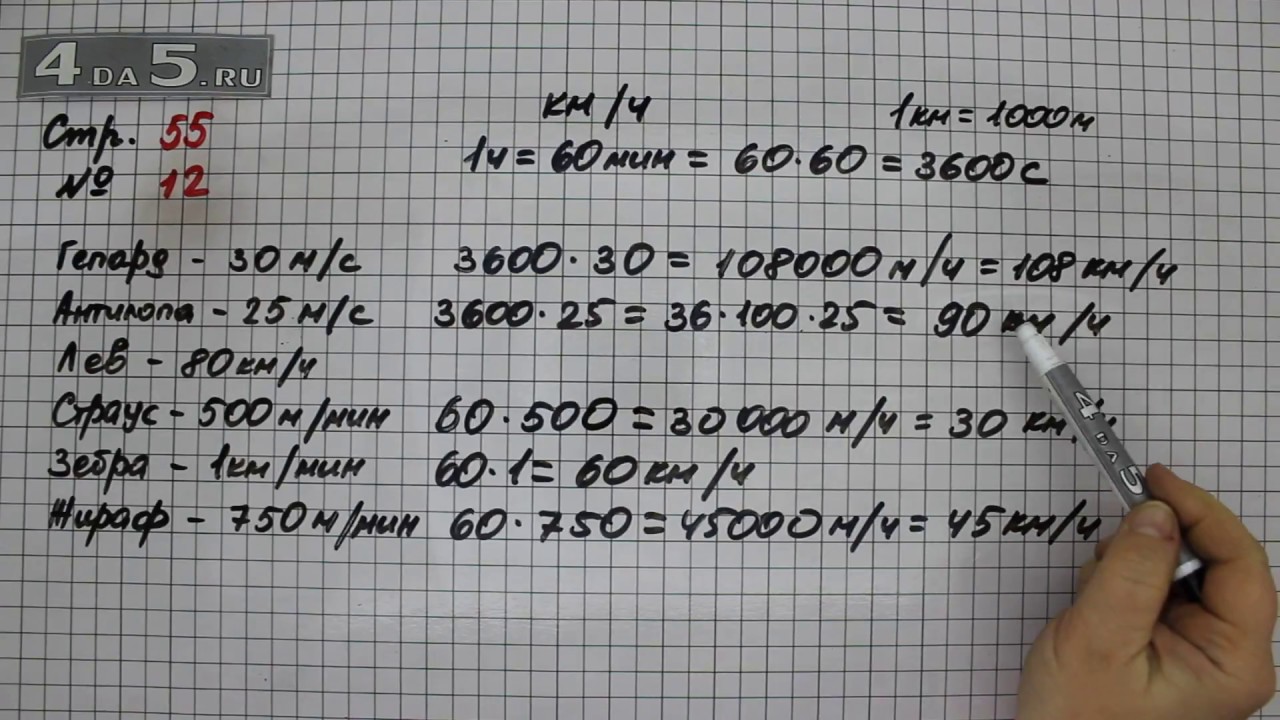 4DA5.RU
Стр. 55
№ 12
км/ч
1км = 1000м
1ч = 60мин = 60·60 = 3600с
Гепард - 30м/с 3600·30 = 108000м/ч = 108км/ч
Антилопа - 25м/с 3600·25 = 36·100·25 = 90км/ч
Лев - 80км/ч
Страус - 500м/мин 60·500 = 30000м/ч = 30 км
Зебра - 1км/мин 60·1 = 60км/ч
Жираф - 750м/мин 60·750 = 45000м/ч = 45км/ч
4 ВА 5